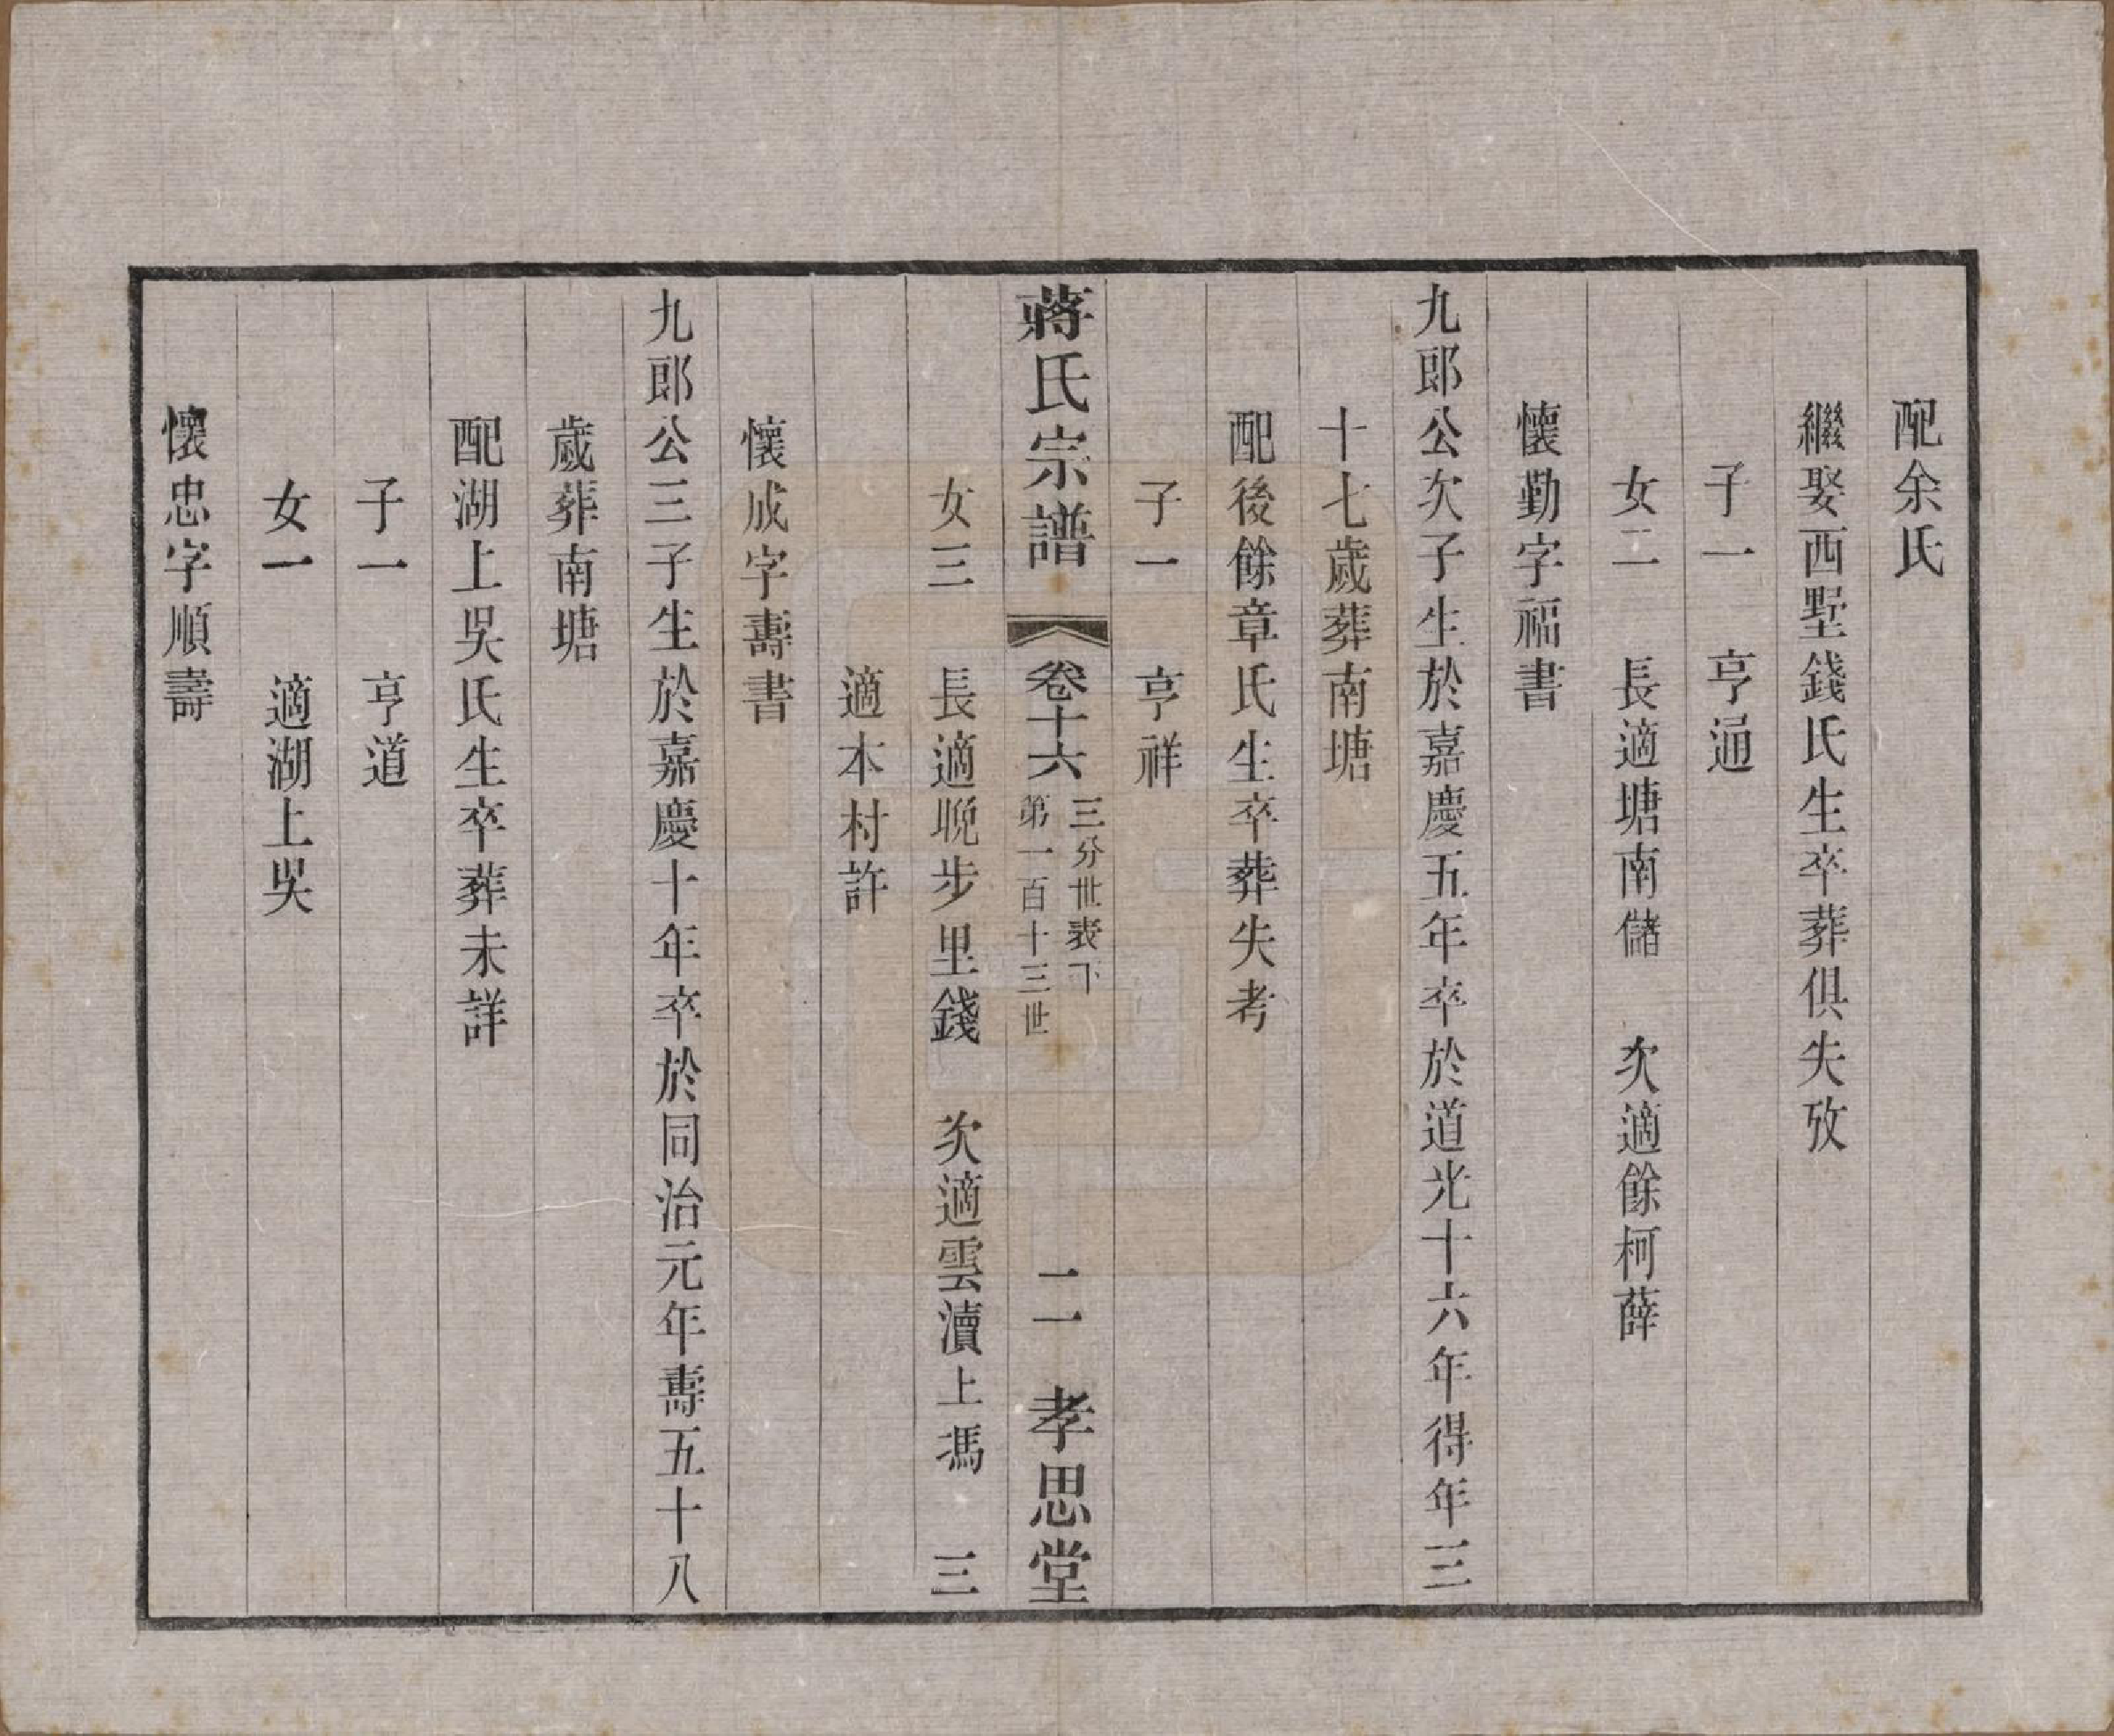 配余氏
繼娶西墅錢氏生卒葬俱失攷
子一　亨通
女二　長適塘南儲　次適餘柯薛
懷勤字福書
九郎公次子生於嘉慶五年卒於道光十六年得年三
十七歲葬南塘
配後餘章氏生卒葬失考
子一　亨祥
蔣氏宗譜　卷十六　三分世表下　第一百十三世　二一　孝思堂
女三　長適晚步里錢　次適雲瀆上馮　三
適本村許
懷成字壽書
九郎公三子生於嘉慶十年卒於同治元年壽五十八
歲葬南塘
配湖上吳氏生卒葬未詳
子一　亨道
女一　適湖上吳
懷忠字順壽